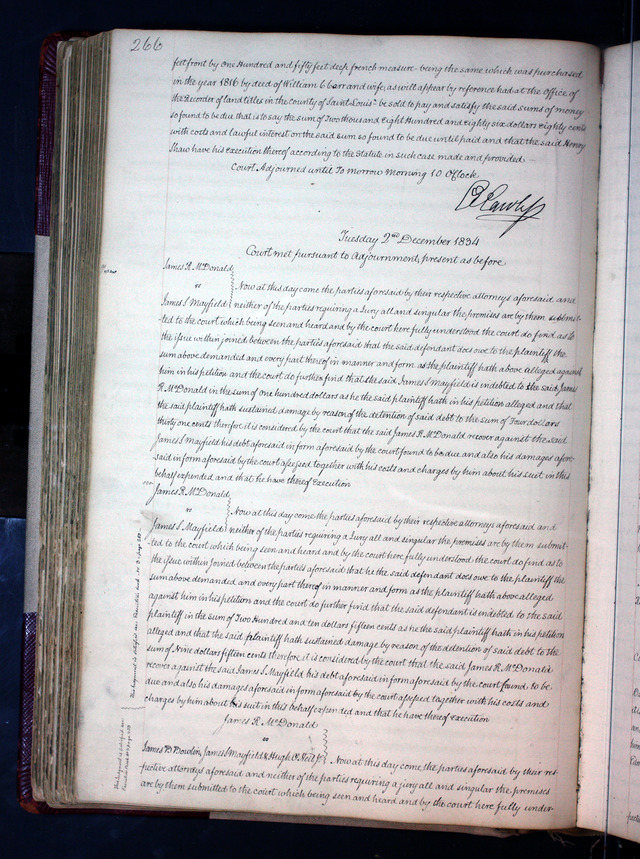 266
feet front by One Hundred and fifty feet deep french measure being the same which was purchased
in the year 1816 by deed of William C Carr and wife, as will appear by reference had at the Office of
the Recorder of land titles in the county of Saint Louis be sold to pay and satisfy the said sums of money
so found to be due that is to say the sum of Two thousand Eight Hundred and eighty six dollars eighty cents
with costs and lawful interest on the said sum so found to be due until paid and that the said Henry
Shaw have his execution thereof according to the Statute in such case made and provided
Court Adjourned until To morrow Morning 10 O'Clock
Tuesday 2nd December 1834
Court met pursuant to Adjournment, present as before
James R. McDonald
vs
James S Mayfield
Now at this day came the parties aforesaid by their respective attorneys aforesaid and
neither of the parties requiring a Jury all and singular the premises are by them submit-
ted to the court which being seen and heard and by the court here fully understood the court do find as to
the issue within joined between the parties aforesaid that the said defendant does owe to the plaintiff the
sum above demanded and every part thereof in manner and form as the plaintiff hath above alleged against
him in his petition and the court do further find that the said James S Mayfield is indebted to the said James
R McDonald in the sum of one hundred dollars as he the said plaintiff hath in his petition alleged and that
the said plaintiff hath sustained damage by reason of the detention of said debt to the sum of Four dollars
thirty one cents therefor it is considered by the court that the said James R. McDonald recover against the said
James S Mayfield his debt aforesaid in form aforesaid by the court found to be due and also his damages afore-
said in form aforesaid by the court assessed together with his costs and charges by him about his suit in this
behalf expended and that he have thereof Execution
James R. McDonald
vs
James S. Mayfield
Now at this day come the parties aforesaid by their respective attorneys aforesaid and
neither of the parties requiring a Jury all and singular the premises are by them submit-
ted to the court which being seen and heard and by the court here fully understood the court do find as to
the issue within joined between the parties aforesaid that he the said defendant does owe to the plaintiff the
sum above demanded and every part thereof in manner and form as the plaintiff hath above alleged
against him in his petition and the court do further find that the said defendant is indebted to the said
plaintiff in the sum of Two Hundred and ten dollars fifteen cents as he the said plaintiff hath in his petition
alleged and that the said plaintiff hath sustained damage by reason of the detention of said debt to the
sum of Nine dollars fifteen cents therefore it is considered by the court that the said James R. McDonald
recover against the said James S. Mayfield his debt aforesaid in form aforesaid by the court found to be
due and also his damages aforesaid in form aforesaid by the court assessed together with his costs and
charges by him about his suit in this behalf expended and that he have thereof execution
James R. McDonald
vs
James S. Mayfield & Hugh
Now at this day come, the parties aforesaid by their res-
pective attorneys aforesaid and neither of the parties requiring a jury all and singular the premises
are by them submitted to the court which being seen and heard and by the court here fully under-